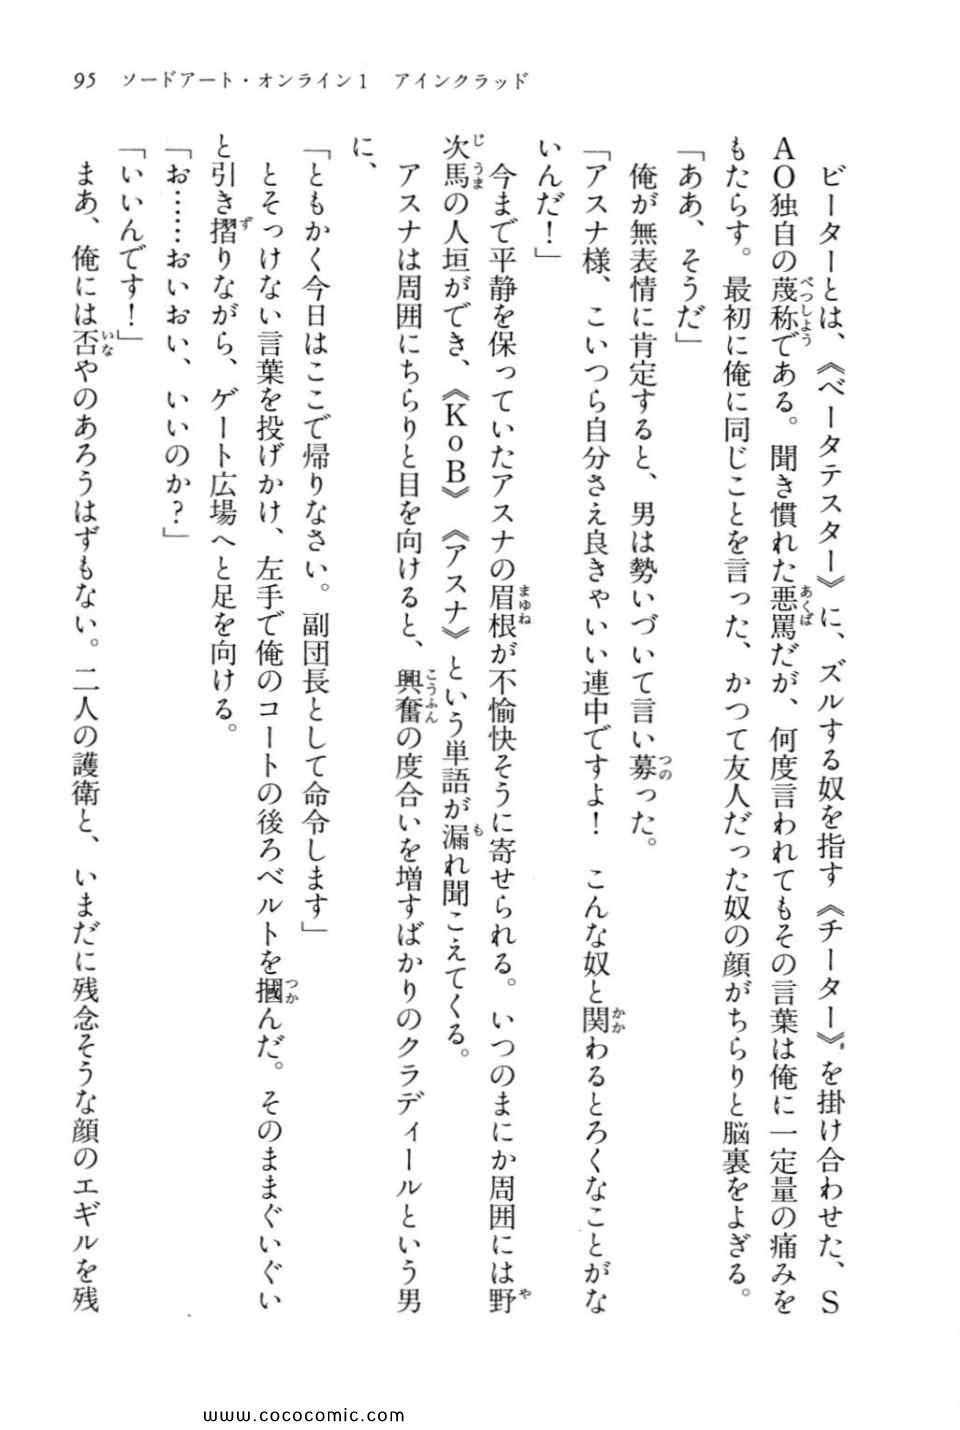 95　ソードアート・オンライン1　アインクラッド
　ビーターとは、《ベータテスター》に、ズルする奴を指す《チーター》を掛け合わせた、S
AO独自の蔑称である。聞き慣れた悪罵だが、何度言われてもその言葉は俺に一定量の痛みを
もたらす。最初に俺に同じことを言った、かつて友人だった奴の顔がちらりと脳裏をよぎる。
「ああ、そうだ」
　俺が無表情に肯定すると、男は勢いづいて言い募った。
「アスナ様、こいつら自分さえ良きゃいい連中ですよ！　こんな奴と関わるとろくなことがな
いんだ！」
　今まで平静を保っていたアスナの眉根が不愉快そうに寄せられる。いつのまにか周囲には野
次馬の人垣ができ、《KoB》《アスナ》という単語が漏れ聞こえてくる。
　アスナは周囲にちらりと目を向けると、興奮の度合いを増すばかりのクラディールという男
に、
「ともかく今日はここで帰りなさい。副団長として命令します」
　とそっけない言葉を投げかけ、左手で俺のコートの後ろベルトを摑んだ。そのままぐいぐい
と引き摺りながら、ゲート広場へと足を向ける。
「お……おいおい、いいのか？」
「いいんです！」
　まあ、俺には否やのあろうはずもない。二人の護衛と、いまだに残念そうな顔のエギルを残
www.cococomic.com